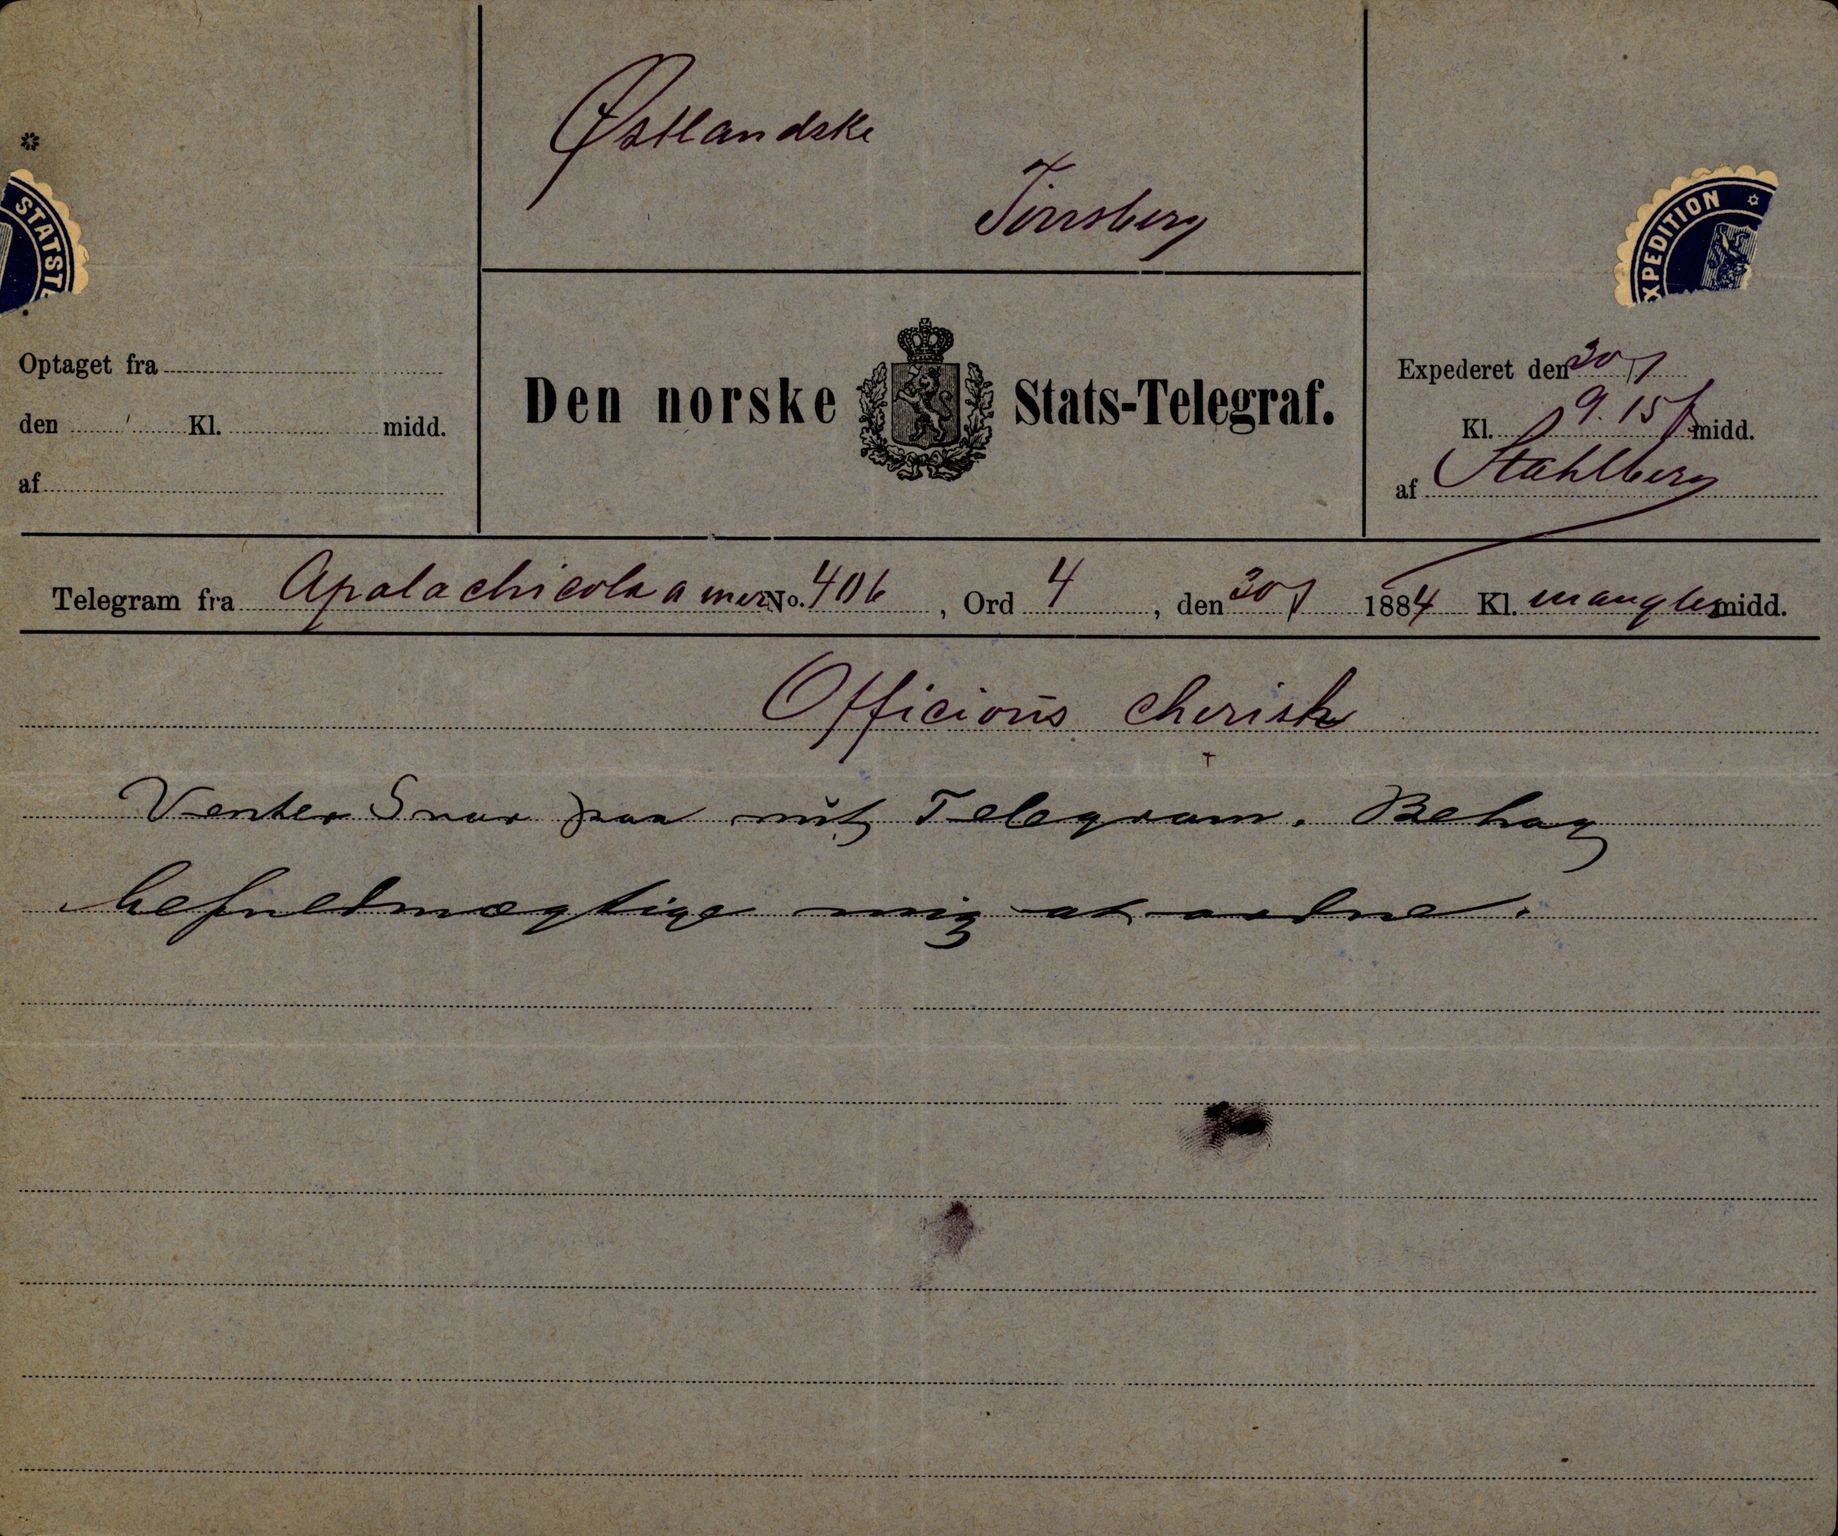 Østlandske
Tönsberg
STATST
XPEDITION
Optaget fra
den Kl. midd.
af
Den norske Stats-Telegraf.
Expederet den 30/7
Kl. 9.15 f midd.
af Stahlberg
Telegram fra Apalachicola amer No. 406, Ord 4, den 30/7 1884 Kl. mangler midd.
Officioūs cherish
Venter Svar paa mit Telegram. Behag
befuldmægtige mig at ordne.